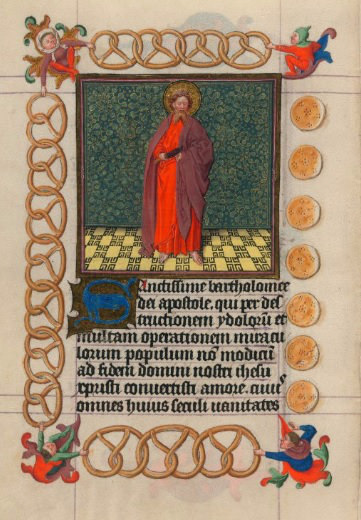 Sanctissime bartholomee
dei apostole, qui per des
tructionem ydolorū et
multam operationem miracu
lorum populum nō modicū
ad fidem domini nostri ihesu
cpristi convertisti amore. cuius
omnes huius seculi vanitates